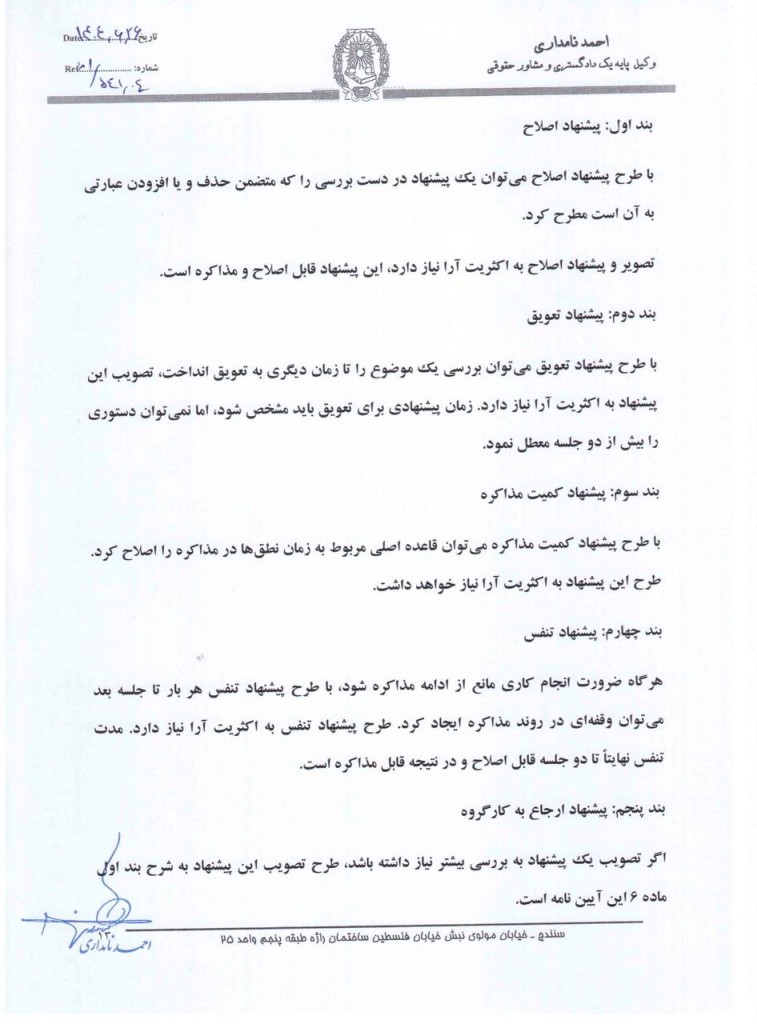 احمد نامداری
وکیل پایه یک دادگستری و مشاور حقوقی
تاریخ
Date
شماره:
Ref
بند اول: پیشنهاد اصلاح
با طرح پیشنهاد اصلاح می‌توان یک پیشنهاد در دست بررسی را که متضمن حذف و یا افزودن عبارتی
به آن است مطرح کرد.
تصویر و پیشنهاد اصلاح به اکثریت آرا نیاز دارد، این پیشنهاد قابل اصلاح و مذاکره است.
بند دوم: پیشنهاد تعویق
با طرح پیشنهاد تعویق می‌توان بررسی یک موضوع را تا زمان دیگری به تعویق انداخت، تصویب این
پیشنهاد به اکثریت آرا نیاز دارد. زمان پیشنهادی برای تعویق باید مشخص شود، اما نمی‌توان دستوری
را بیش از دو جلسه معطل نمود.
بند سوم: پیشنهاد کمیت مذاکره
با طرح پیشنهاد کمیت مذاکره می‌توان قاعده اصلی مربوط به زمان نطق‌ها در مذاکره را اصلاح کرد.
طرح این پیشنهاد به اکثریت آرا نیاز خواهد داشت.
بند چهارم: پیشنهاد تنفس
هرگاه ضرورت انجام کاری مانع از ادامه مذاکره شود، با طرح پیشنهاد تنفس هر بار تا جلسه بعد
می‌توان وقفه‌ای در روند مذاکره ایجاد کرد. طرح پیشنهاد تنفس به اکثریت آرا نیاز دارد. مدت
تنفس نهایتاً تا دو جلسه قابل اصلاح و در نتیجه قابل مذاکره است.
بند پنجم: پیشنهاد ارجاع به کارگروه
اگر تصویب یک پیشنهاد به بررسی بیشتر نیاز داشته باشد، طرح تصویب این پیشنهاد به شرح بند اول
ماده ۶ این آیین نامه است.
۱۳
احمد نامداری
سنندج ـ خیابان مولوی نبش خیابان فلسطین ساختمان راژه طبقه پنجم واحد ۲۵